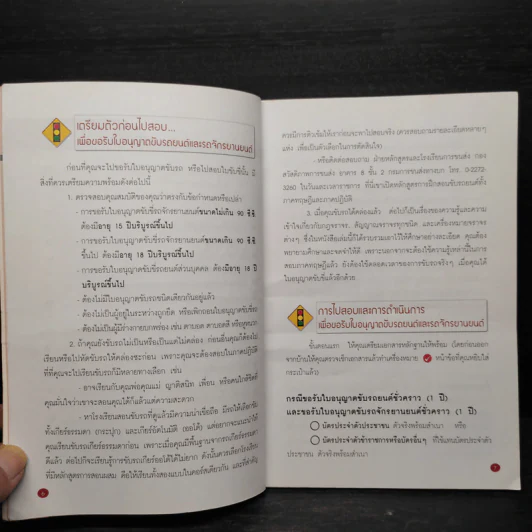 เตรียมตัวก่อนไปสอบ...
เพื่อขอรับใบอนุญาตขับรถยนต์และรถจักรยานยนต์
ก่อนที่คุณจะไปขอรับใบอนุญาตขับรถ หรือไปสอบใบขับขี่นั้น มี
สิ่งที่ควรเตรียมความพร้อมดังต่อไปนี้
1. ตรวจสอบคุณสมบัติของคุณว่าตรงกับข้อกำหนดหรือเปล่า
- การขอรับใบอนุญาตขับขี่รถจักรยานยนต์ขนาดไม่เกิน 90 ซี.ซี.
ต้องมีอายุ 15 ปีบริบูรณ์ขึ้นไป
- การขอรับใบอนุญาตขับขี่รถจักรยานยนต์ขนาดเกิน 90 ซี.ซี.
ขึ้นไป ต้องมีอายุ 18 ปีบริบูรณ์ขึ้นไป
- การขอรับใบอนุญาตขับขี่รถยนต์ส่วนบุคคล ต้องมีอายุ 18 ปี
บริบูรณ์ขึ้นไป
- ต้องไม่มีใบอนุญาตขับรถชนิดเดียวกันอยู่แล้ว
- ต้องไม่เป็นผู้อยู่ในระหว่างถูกยึด หรือเพิกถอนใบอนุญาตขับรถ
- ต้องไม่เป็นผู้มีร่างกายบกพร่อง เช่น ตาบอด ตาบอดสี หรือหูหนวก
2. ถ้าคุณยังขับรถไม่เป็นหรือเป็นแต่ไม่คล่อง ก่อนอื่นคุณก็ต้องไป
เรียนหรือไปหัดขับรถให้คล่องซะก่อน เพราะคุณจะต้องสอบในภาคปฏิบัติ
ที่ที่คุณจะไปเรียนขับรถก็มีหลายทางเลือก เช่น
- อาจเรียนกับคุณพ่อคุณแม่ ญาติสนิท เพื่อน หรือคนใกล้ชิดที่
คุณมั่นใจว่าเขาจะสอนคุณได้ก็แล้วแต่ความสะดวก
- หาโรงเรียนสอนขับรถที่ดูแล้วมีความน่าเชื่อถือ มีรถให้เลือกขับ
ทั้งเกียร์ธรรมดา (กระปุก) และเกียร์อัตโนมัติ (ออโต้) แต่อยากจะแนะนำให้
คุณเรียนขับรถเกียร์ธรรมดาก่อน เพราะเมื่อคุณมีพื้นฐานจากรถเกียร์ธรรมดา
ดีแล้ว ต่อไปก็จะเรียนรู้การขับรถเกียร์ออโต้ได้ไม่ยาก ดังนั้นควรเลือกโรงเรียน
ที่มีหลักสูตรการสอนผสม คือให้เรียนทั้งสองแบบในคอร์สเดียวกัน และที่สำคัญ
6
ควรมีการติวเข้มให้เราก่อนจะพาไปสอบจริง (ควรสอบถามรายละเอียดหลายๆ
แห่ง เพื่อเป็นตัวเลือกในการตัดสินใจ)
- หรือติดต่อสอบถาม ฝ่ายหลักสูตรและโรงเรียนการขนส่ง กอง
สวัสดิภาพการขนส่ง อาคาร 8 ชั้น 2 กรมการขนส่งทางบก โทร. 0-2272-
5260 ในวันและเวลาราชการ ที่นี่เขาเปิดหลักสูตรการฝึกสอนขับรถยนต์ทั้ง
ภาคทฤษฎีและภาคปฏิบัติ
3. เมื่อคุณขับรถได้คล่องแล้ว ต่อไปก็เป็นเรื่องของความรู้และความ
เข้าใจเกี่ยวกับกฎจราจร, สัญญาณจราจรทุกชนิด และเครื่องหมายจราจร
ต่างๆ ซึ่งในหนังสือเล่มนี้ก็ได้รวบรวมเอาไว้ให้ศึกษาอย่างละเอียด คุณต้อง
พยายามศึกษาและจดจำให้ดี เพราะนอกจากจะต้องใช้ความรู้เหล่านี้ในการ
สอบภาคทฤษฎีแล้ว ยังต้องใช้ตลอดเวลาของการขับรถจริงๆ เมื่อคุณได้
ใบอนุญาตขับขี่แล้วอีกด้วย
การไปสอบและการดำเนินการ
เพื่อขอรับใบอนุญาตขับรถยนต์และรถจักรยานยนต์
ขั้นตอนแรก ให้คุณเตรียมเอกสารหลักฐานให้พร้อม (โดยก่อนที่
ออกจากบ้านให้คุณตรวจเช็กเอกสารแล้วทำเครื่องหมาย หน้าข้อที่คุณหยิบใส่
กระเป๋าแล้ว)
กรณีขอรับใบอนุญาตขับรถยนต์ชั่วคราว (1 ปี)
และขอรับใบอนุญาตขับรถจักรยานยนต์ชั่วคราว (1 ปี)
บัตรประจำตัวประชาชน ตัวจริงพร้อมสำเนา หรือ
บัตรประจำตัวข้าราชการหรือบัตรอื่นๆ ที่ใช้แทนบัตรประจำตัว
ประชาชน ตัวจริงพร้อมสำเนา
7